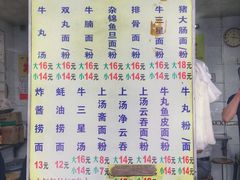 牛丸汤
大16元
小14元
双丸面/粉
大16元
小14元
牛腩面/粉
大16元
小14元
杂锦鱼旦面/粉
大16元
小14元
排骨面/粉
大16元
小14元
牛三星面/粉
大16元
小14元
猪大肠面/粉
大16元
小14元
炸酱捞面
13元
蚝油捞面
12元
牛三星汤
大16元
小14元
上汤斋面/粉
大8元
小7元
上汤净云吞
大14元
上汤云吞面/粉
大14元
牛丸鱼皮面/粉
大16元
小14元
牛丸粉/面
大16元
小14元